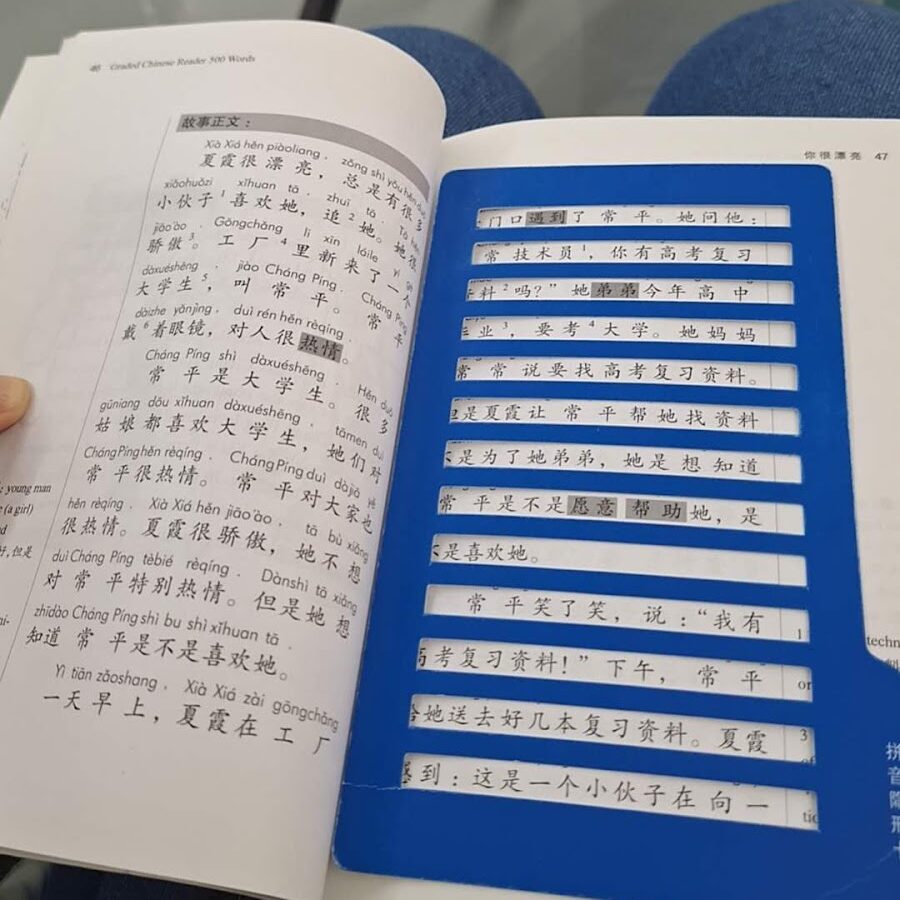 46 Graded Chinese Reader 500 Words
故事正文：
Xià Xiá hěn piàoliang, zǒng shì yǒu hěn duō
夏霞很漂亮，总是有很多
xiǎohuǒzi xǐhuan tā, zhuī tā. Tā hěn
小伙子1喜欢她，追2她。她很
jiāo'ào. Gōngchǎng li xīn láile yí gè
骄傲3。工厂4里新来了一个
dàxuéshēng, jiào Cháng Píng. Cháng Píng
大学生5，叫常平。常平
dàizhe yǎnjìng, duì rén hěn rèqíng.
戴6着眼镜，对人很热情。
Cháng Píng shì dàxuéshēng. Hěn duō
常平是大学生。很多
gūniang dōu xǐhuan dàxuéshēng, tāmen duì
姑娘都喜欢大学生，她们对
Cháng Píng hěn rèqíng. Cháng Píng duì dàjiā yě
常平很热情。常平对大家也
hěn rèqíng. Xià Xiá hěn jiāo'ào, tā bù xiǎng
很热情。夏霞很骄傲，她不想
duì Cháng Píng tèbié rèqíng. Dànshì tā xiǎng
对常平特别热情。但是她想
zhīdào Cháng Píng shì bu shì xǐhuan tā.
知道常平是不是喜欢她。
Yì tiān zǎoshang, Xià Xiá zài gōngchǎng
一天早上，夏霞在工厂
: young man
(a girl)
好，但是
你很漂亮 47
门口遇到了常平。她问他：
常技术员1，你有高考复习
料2吗？”她弟弟今年高中
业3，要考4大学。她妈妈
常常说要找高考复习资料。
但是夏霞让常平帮她找资料
不是为了她弟弟，她是想知道
常平是不是愿意帮助她，是
不是喜欢她。
常平笑了笑，说：“我有
高考复习资料！”下午，常平
给她送去好几本复习资料。夏霞
感到：这是一个小伙子在向一
techn
拼音隐形